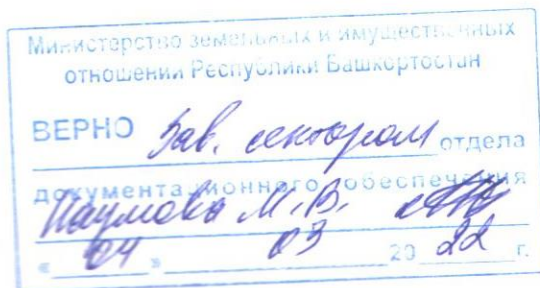 Министерство земельных и имущественных
отношений Республики Башкортостан
ВЕРНО Зав. сектором отдела
документационного обеспечения
Наумова М.В.
« 04 » 03 20 22 г.